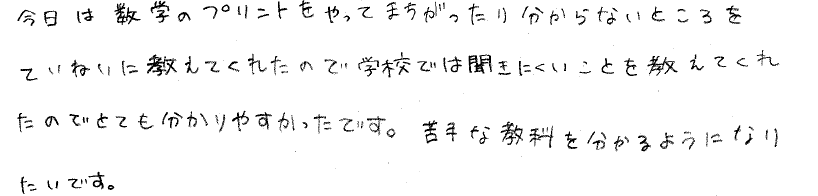 今日は数学のプリントをやってまちがったり分からないところを
ていねいに教えてくれたので学校では聞きにくいことを教えてくれ
たのでとても分かりやすかったです。苦手な教科を分かるようになり
たいです。